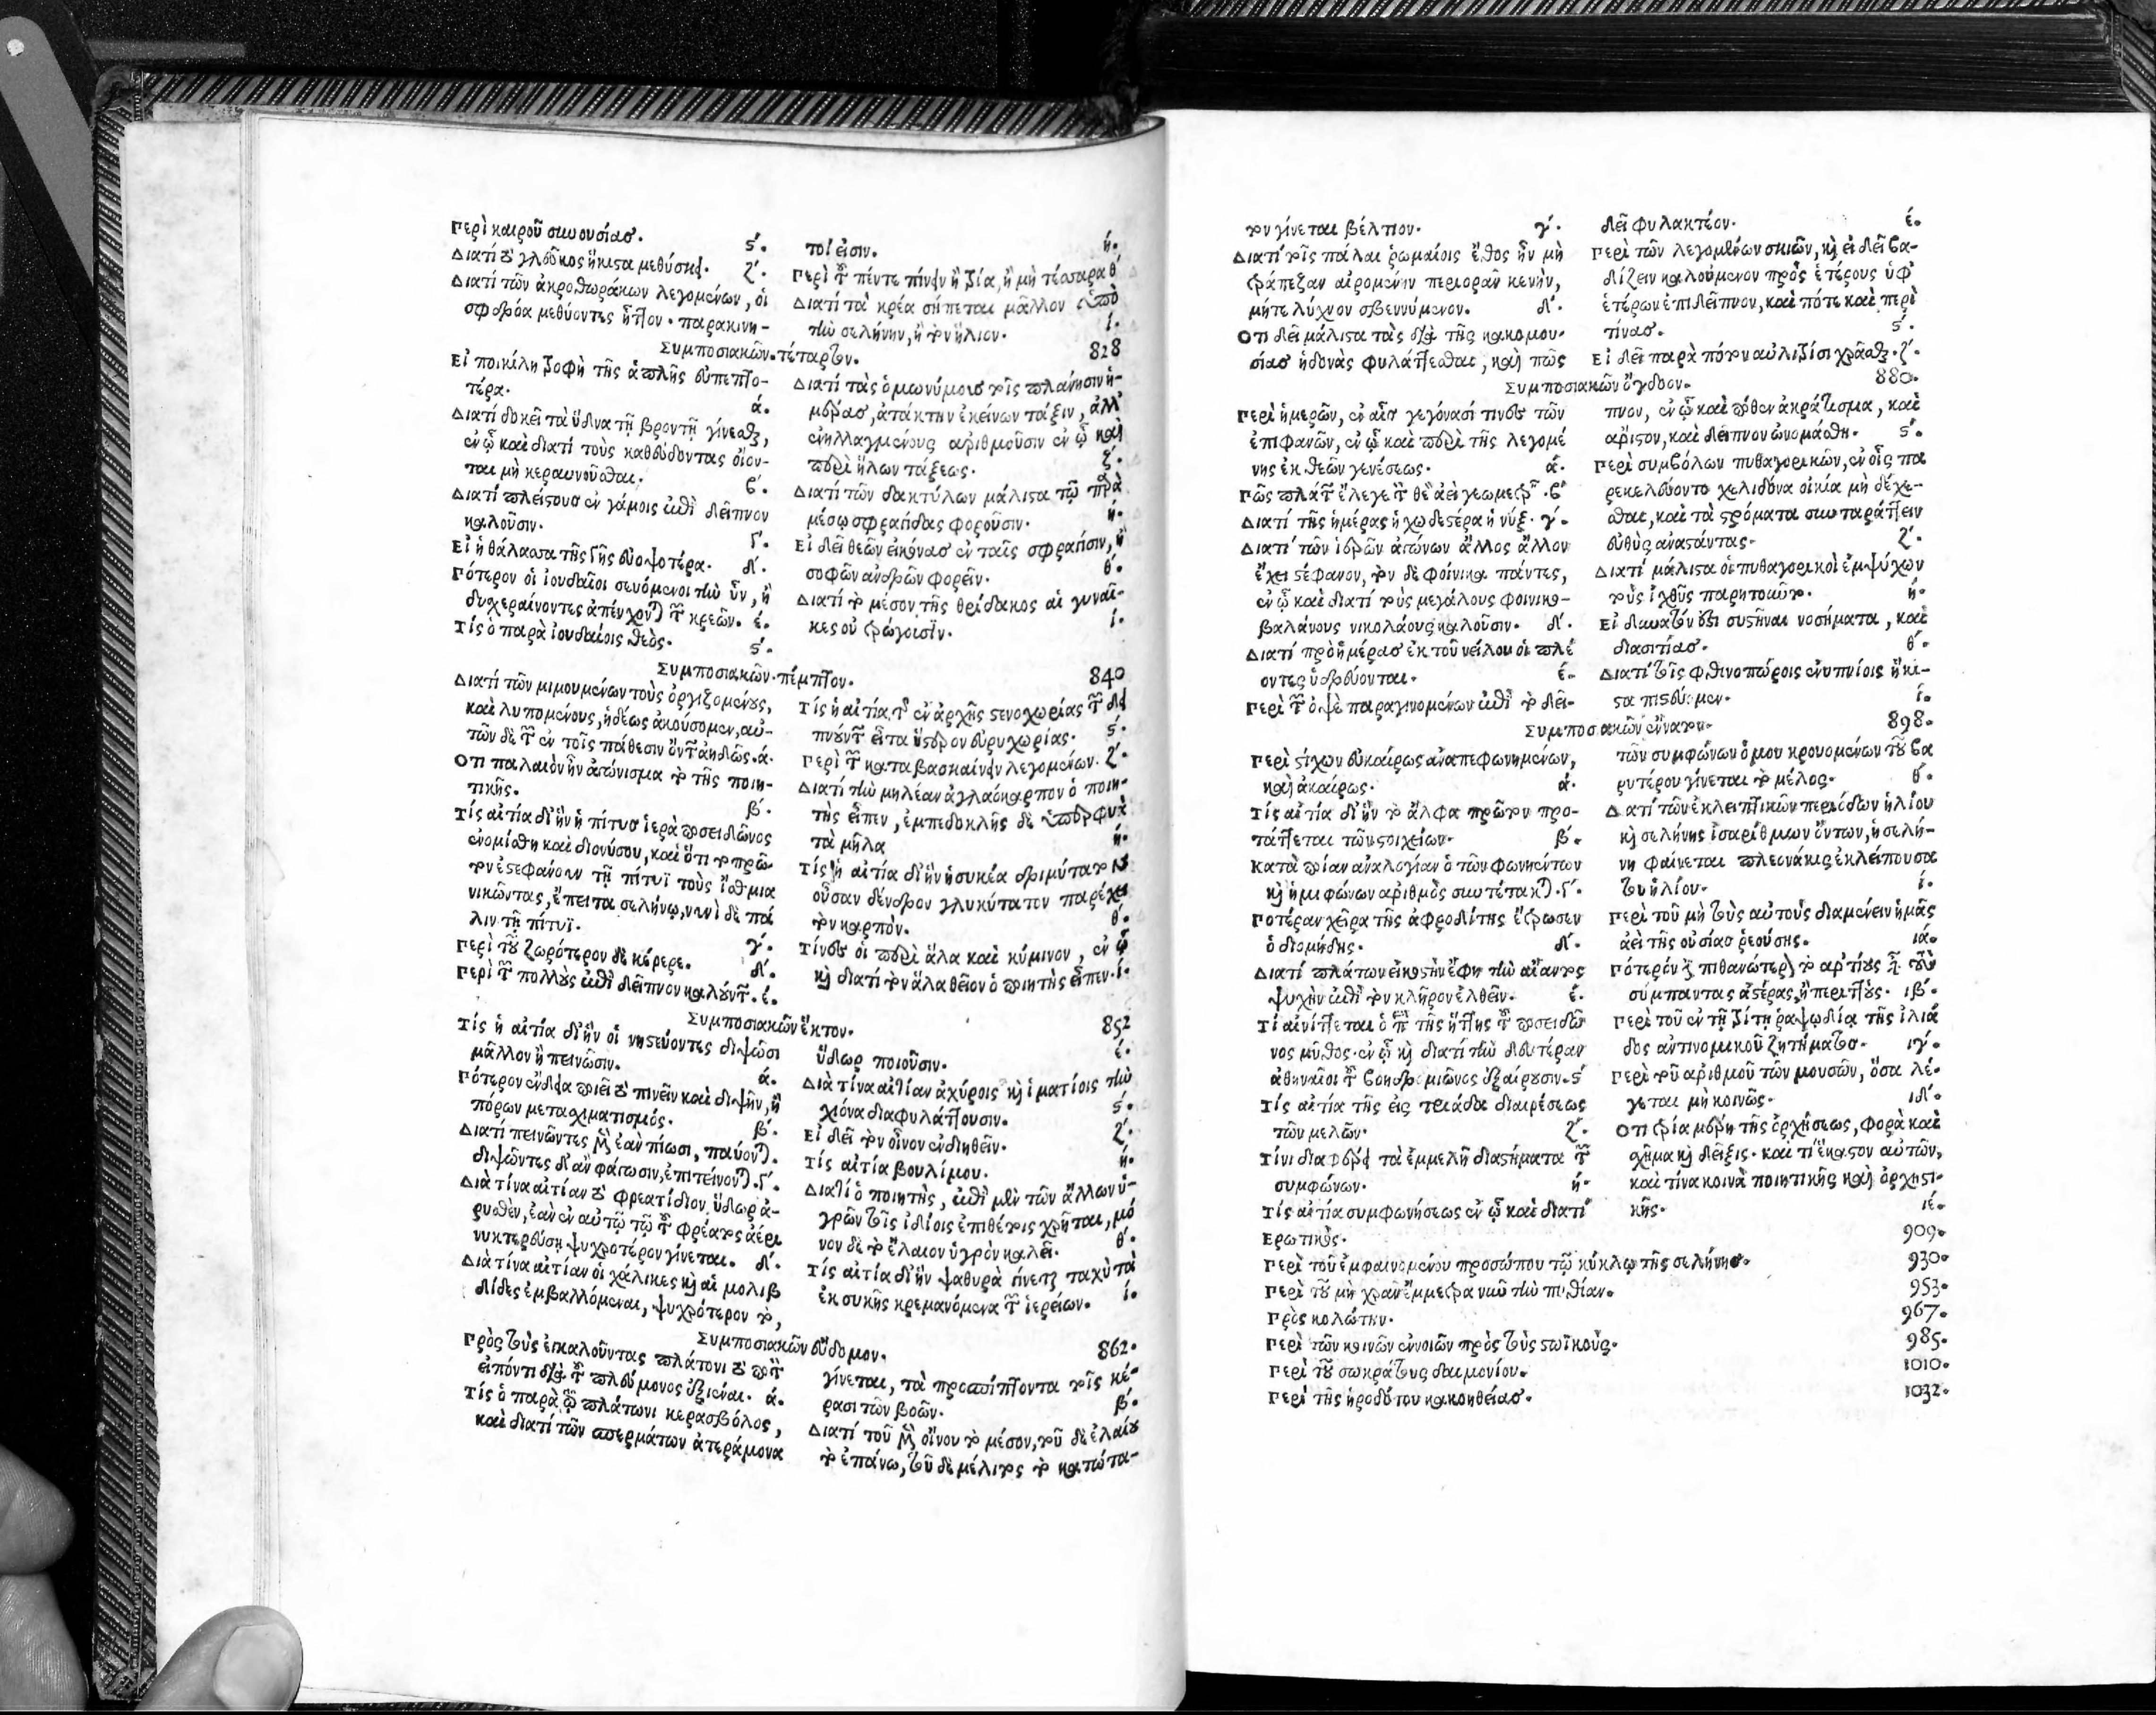 Περὶ καιροῦ συνουσίας. ϛ´.
Διατί τὸ γλεῦκος ἥκιστα μεθύσκει. ζ´.
Διατί τῶν ἀκροθωράκων λεγομένων, οἱ
σφόδρα μεθύοντες ἧττον· παρακινη-
τοί εἰσιν. ή.
Περὶ τοῦ πέντε πίνειν ἢ τρία, ἢ μὴ τέσσαρα θ´
Διατί τὰ κρέα σήπεται μᾶλλον ὑπὸ
τὴν σελήνην, ἢ τὸν ἥλιον. ί.
Συμποσιακῶν· τέταρτον. 828
Εἰ ποικίλη τροφὴ τῆς ἁπλῆς εὐπεπτο-
τέρα. ά.
Διατί δοκεῖ τὰ ὕδνα τῇ βροντῇ γίνεσθαι,
ἐν ᾧ καὶ διατί τοὺς καθεύδοντας οἴον-
ται μὴ κεραυνοῦσθαι. β´.
Διατί πλείστους ἐν γάμοις ἐπὶ δεῖπνον
καλοῦσιν. γ´.
Εἰ ἡ θάλασσα τῆς γῆς εὐοψοτέρα. δ´.
Πότερον οἱ ἰουδαῖοι σευόμενοι τὴν ὗν, ἢ
δυχεραίνοντες ἀπέχονται τῶν κρεῶν. έ.
Τίς ὁ παρὰ ἰουδαίοις θεὸς. ϛ´.
Διατί τὰς ὁμωνύμους τοῖς πλάνησιν ἡ-
μέρας, ἀτάκτην ἐκείνων τάξιν, ἀλλ᾽
ἐνηλλαγμένους ἀριθμοῦσιν ἐν ᾧ καὶ
περὶ ἥλων τάξεως. ζ´.
Διατί τῶν δακτύλων μάλιστα τῷ παρὰ
μέσῳ σφραγῖδας φοροῦσιν. ή.
Εἰ δεῖ θεῶν εἰκόνας ἐν ταῖς σφραγῖσιν, ἢ
σοφῶν ἀνδρῶν φορεῖν. θ´.
Διατί τὸ μέσον τῆς θρίδακος αἱ γυναῖ-
κες οὐ τρώγουσιν. ί.
Συμποσιακῶν· πέμπτον. 840
Διατί τῶν μιμουμένων τοὺς ὀργιζομένους,
καὶ λυπομένους, ἡδέως ἀκούσομεν, αὐ-
τῶν δὲ τῶν ἐν τοῖς πάθεσιν ὄντων ἀηδῶς. ά.
Οτι παλαιὸν ἦν ἀγώνισμα τὸ τῆς ποιη-
τικῆς. β´.
Τίς αἰτία δι᾽ ἣν ἡ πίτυς ἱερὰ ποσειδῶνος
ἐνομίσθη καὶ διονύσου, καὶ ὅτι τὸ πρῶ-
τον ἐστεφάνουν τῇ πίτυϊ τοὺς ἴσθμια
νικῶντας, ἔπειτα σελίνῳ, νυνὶ δὲ πά
λιν τῇ πίτυϊ. γ´.
Περὶ τοῦ ζωρότερον δὲ κέρερε. δ´.
Περὶ τοῦ πολλοὺς ἐπὶ δεῖπνον καλοῦντος. έ.
Τίς ἡ αἰτία τῆς ἐν ἀρχῆς στενοχωρίας τῶν δει
πνούντων εἶτα ὕστερον εὐρυχωρίας. ϛ´.
Περὶ τῶν καταβασκαίνειν λεγομένων. ζ´.
Διατί τὴν μηλέαν ἀγλαόκαρπον ὁ ποιη-
τὴς εἶπεν, ἐμπεδοκλῆς δὲ ὑπέρφυα
τὰ μῆλα ή.
Τίς ἡ αἰτία δι᾽ ἣν ἡ συκέα δριμύτατον
οὖσαν δένδρον γλυκύτατον παρέχει
τὸν καρπὸν. θ´.
Τίνες οἱ περὶ ἅλα καὶ κύμινον, ἐν ᾧ
καὶ διατί τὸν ἅλα θεῖον ὁ ποιητὴς εἶπεν. ί.
Συμποσιακῶν ἕκτον. 852
Τίς ἡ αἰτία δι᾽ ἣν οἱ νηστεύοντες διψῶσι
μᾶλλον ἢ πεινῶσιν. ά.
Πότερον ἔνδεια ποιεῖ τὸ πινεῖν καὶ διψῆν, ἢ
πόρων μετασχματισμός. β´.
Διατί πεινῶντες μὲν ἐὰν πίωσι, παύονται.
διψῶντες δ᾽ ἂν φάγωσιν, ἐπιτείνονται. γ´.
Διὰ τίνα αἰτίαν τὸ φρεατίδιον ὕδωρ ἀ-
ρυσθὲν, ἐὰν ἐν αὐτῷ τῷ τοῦ φρέατος ἀέρι
νυκτερεύσῃ ψυχροτέρον γίνεται. δ´.
Διὰ τίνα αἰτίαν οἱ χάλικες καὶ αἱ μολιβ
δίδες ἐμβαλλόμεναι, ψυχρότερον τὸ,
ὕδωρ ποιοῦσιν. έ.
Διὰ τίνα αἰτίαν ἀχύροις καὶ ἱματίοις τὴν
χιόνα διαφυλάττουσιν. ϛ´.
Εἰ δεῖ τὸν οἶνον ἐνδιηθεῖν. ζ´.
Τίς αἰτία βουλίμου. ή.
Διατί ὁ ποιητὴς, ἐπὶ μὲν τῶν ἄλλων ὑ-
γρῶν τοῖς ἰδίοις ἐπιθέτοις χρῆται, μό
νον δὲ τὸ ἔλαιον ὑγρὸν καλεῖ. θ´.
Τίς αἰτία δι᾽ ἣν ψαθυρὰ γίνεται ταχὺ τὰ
ἐκ συκῆς κρεμανόμενα τῶν ἱερείων. ί.
Συμποσιακῶν ἕβδομον. 862.
Πρὸς τοὺς ἐγκαλοῦντας πλάτονι τὸ ποτὸν
εἰπόντι διὰ τοῦ πλεύμονος ἐξιέναι. ά.
Τίς ὁ παρὰ τῷ πλάτωνι κερασβόλος,
καὶ διατί τῶν σπερμάτων ἀτεράμονα
γίνεται, τὰ προσπίπτοντα τοῖς κέ-
ρασι τῶν βοῶν. β´.
Διατί τοῦ μὲν οἴνου τὸ μέσον, τοῦ δὲ ἐλαίου
τὸ ἐπάνω, τοῦ δὲ μέλιτος τὸ κατώτα-
τον γίνεται βέλτιον. γ´.
Διατί τοῖς πάλαι ῥωμαίοις ἔθος ἦν μὴ
τράπεζαν αἰρομένην περιορᾶν κενὴν,
μήτε λύχνον σβεννύμενον. δ´.
Οτι δεῖ μάλιστα τὰς διὰ τῆς κακομου-
σίας ἡδονὰς φυλάττεσθαι, καὶ πῶς
δεῖ φυλακτέον. έ.
Περὶ τῶν λεγομένων σκιῶν, καὶ εἰ δεῖ βα-
δίζειν καλούμενον πρὸς ἑτέρους ὑφ᾽
ἑτέρων ἐπιδεῖπνον, καὶ πότε καὶ περὶ
τίνας. ϛ´.
Εἰ δεῖ παρὰ πότον αὐλιτρίσι χρᾶσθαι. ζ´.
Συμποσιακῶν ὄγδοον. 880.
Περὶ ἡμερῶν, ἐν αἷς γεγόνασί τινες τῶν
ἐπιφανῶν, ἐν ᾧ καὶ περὶ τῆς λεγομέ
νης ἐκ θεῶν γενέσεως. ά.
Πῶς πλάτων ἔλεγε τὸν θεὸν ἀεὶ γεωμετρεῖν. β´
Διατί τῆς ἡμέρας ἠχωδεστέρα ἡ νύξ. γ´.
Διατί τῶν ἱερῶν ἀγώνων ἄλλος ἄλλον
ἔχει στέφανον, τὸν δὲ φοίνικα πάντες,
ἐν ᾧ καὶ διατί τοὺς μεγάλους φοινικο-
βαλάνους νικολάους καλοῦσιν. δ´.
Διατί πρὸ ἡμέρας ἐκ τοῦ νείλου οἱ πλέ
οντες ὑδρεύονται. έ.
Περὶ τῶν ὀψὲ παραγινομένων ἐπὶ τὸ δεῖ-
πνον, ἐν ᾧ καὶ πόθεν ἀκράτισμα, καὶ
ἄριστον, καὶ δεῖπνον ὠνομάσθη. ϛ´.
Περὶ συμβόλων πυθαγορικῶν, ἐν οἷς πα
ρεκελεύοντο χελιδόνα οἰκία μὴ δέχε-
σθαι, καὶ τὰ στρόματα συνταράττειν
εὐθὺς ἀναστάντας. ζ´.
Διατί μάλιστα οἱ πυθαγορικοὶ ἐμψύχων
τοὺς ἰχθῦς παρῃτοῦντο. ή.
Εἰ δυνατόν ἐστι συστῆναι νοσήματα, καὶ
διασιτίας. θ´.
Διατί τοῖς φθινοπώροις ἐνυπνίοις ἥκι-
στα πιστεύομεν. ί.
Συμποσιακῶν ἔννατον. 898.
Περὶ στίχων εὐκαίρως ἀναπεφωνημένων,
καὶ ἀκαίρως. ά.
Τίς αἰτία δι᾽ ἣν τὸ ἄλφα πρῶτον προ-
τάττεται τῶν στοιχείων. β´.
Κατὰ ποίαν ἀναλογίαν ὁ τῶν φωνηέντων
καὶ ἡμιφώνων ἀριθμὸς συντέτακται. γ´.
Ποτέραν χεῖρα τῆς ἀφροδίτης ἔτρωσεν
ὁ διομήδης. δ´.
Διατί πλάτων εἰκοστὴν ἔφη τὴν αἴαντος
ψυχὴν ἐπὶ τὸν κλῆρον ἐλθεῖν. έ.
Τί αἰνίττεται ὁ περὶ τῆς ἥττης τοῦ ποσειδῶ
νος μῦθος. ἐν ᾧ καὶ διατί τὴν δευτέραν
ἀθηναῖοι τοῦ βοηδρομιῶνος ἐξαίρουσιν. ϛ´
Τίς αἰτία τῆς εἰς τριάδα διαιρέσεως
τῶν μελῶν. ζ´.
Τίνι διαφέρει τὰ ἐμμελῆ διαστήματα τῶν
συμφώνων. ή.
Τίς αἰτία συμφωνήσεως ἐν ᾧ καὶ διατί
τῶν συμφώνων ὁμου κρουομένων τοῦ βα
ρυτέρου γίνεται τὸ μέλος. θ´.
Διατί τῶν ἐκλειπτικῶν περιόδων ἡλίου
καὶ σελήνης ἰσαρίθμων ὄντων, ἡ σελή-
νη φαίνεται πλεονάκις ἐκλείπουσα
τοῦ ἡλίου. ί.
Περὶ τοῦ μὴ τοὺς αὐτοὺς διαμένειν ἡμᾶς
ἀεὶ τῆς οὐσίας ῥεούσης. ιά.
Πότερόν ἐστι πιθανώτερον τὸ ἀρτίους εἶναι τοὺς
σύμπαντας ἀστέρας, ἢ περιττοὺς. ιβ´.
Περὶ τοῦ ἐν τῇ τρίτῃ ραψῳδίᾳ τῆς ἰλιά
δος ἀντινομικοῦ ζητήματος. ιγ´.
Περὶ τοῦ ἀριθμοῦ τῶν μουσῶν, ὅσα λέ-
γεται μὴ κοινῶς. ιδ´.
Οτι τρία μέρη τῆς ὀρχήσεως, φορὰ καὶ
σχῆμα καὶ δεῖξις. καὶ τί ἕκαστον αὐτῶν,
καὶ τίνα κοινὰ ποιητικῆς καὶ ὀρχηστι-
κῆς. ιέ.
Ερωτικός. 909.
Περὶ τοῦ ἐμφαινομένου προσώπου τῷ κύκλῳ τῆς σελήνης. 930.
Περὶ τοῦ μὴ χρᾶν ἔμμετρα νῦν τὴν πυθίαν. 953.
Πρὸς κολώτην. 967.
Περὶ τῶν κοινῶν ἐννοιῶν πρὸς τοὺς στωϊκούς. 985.
Περὶ τοῦ σωκράτους δαιμονίου. 1010.
Περὶ τῆς ἡροδότου κακοηθείας. 1032.